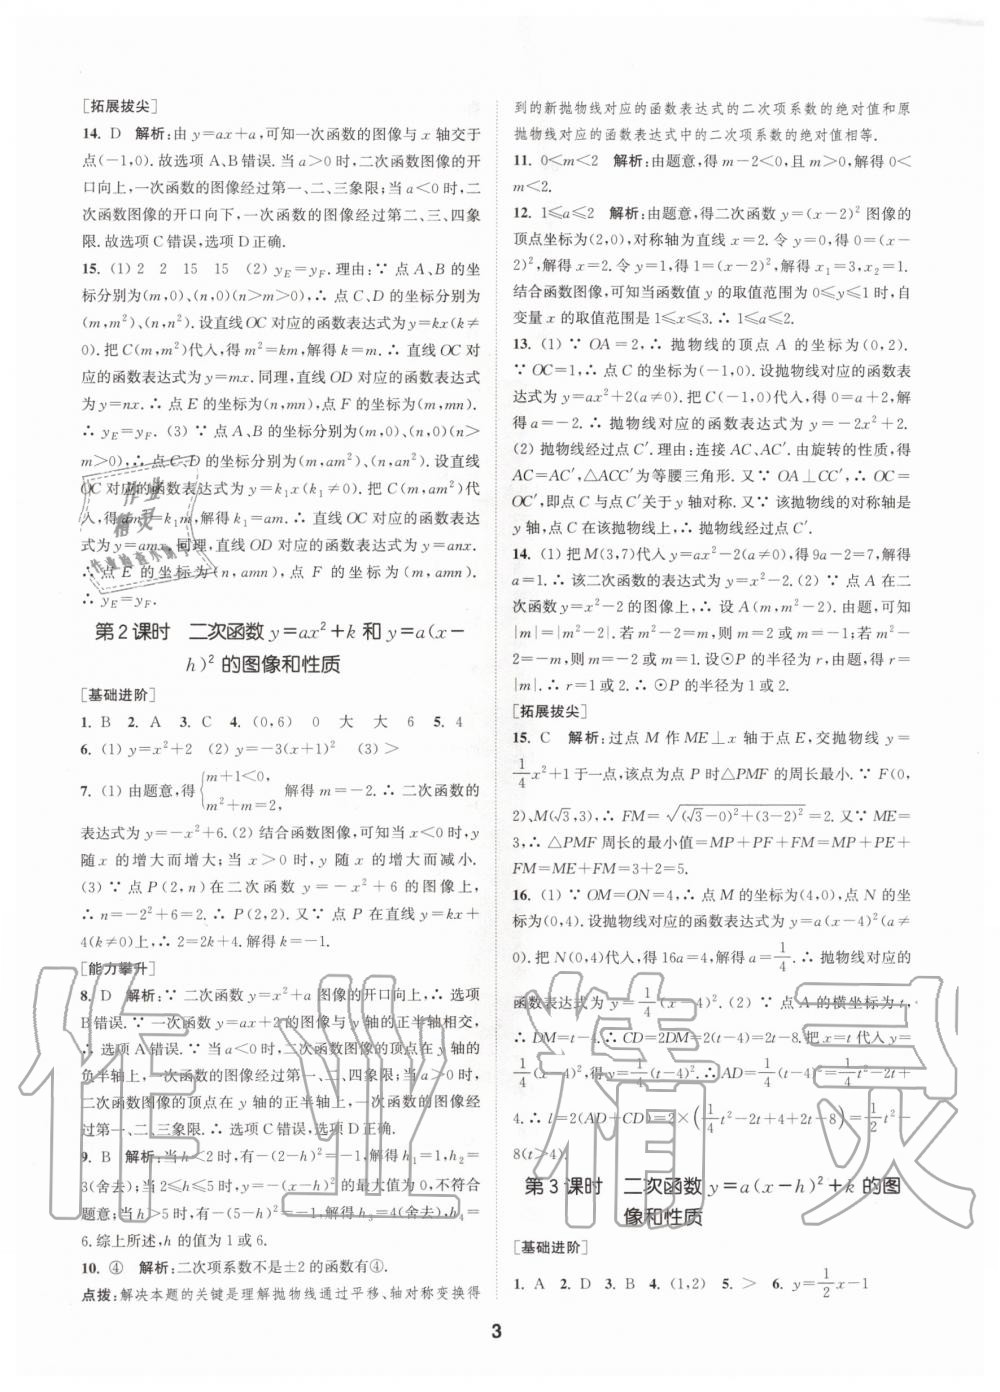 [拓展拔尖]
14. D 解析:由 y=ax+a,可知一次函数的图像与 x 轴交于
点(-1,0).故选项A、B错误.当 a>0 时,二次函数图像的开
口向上,一次函数的图像经过第一、二、三象限;当 a<0 时,二
次函数图像的开口向下,一次函数的图像经过第二、三、四象
限.故选项C错误,选项D正确.
15. (1) 2 2 15 15 (2) yE=yF.理由:∵ 点A、B的坐
标分别为(m,0)、(n,0)(n>m>0),∴ 点C、D的坐标分别为
(m,m²)、(n,n²).设直线OC对应的函数表达式为y=kx(k≠
0).把C(m,m²)代入,得m²=km,解得k=m.∴ 直线OC对
应的函数表达式为y=mx.同理,直线OD对应的函数表达式
为y=nx.∴ 点E的坐标为(n,mn),点F的坐标为(m,mn).
∴ yE=yF. (3) ∵ 点A、B的坐标分别为(m,0)、(n,0)(n>
m>0),∴ 点C、D的坐标分别为(m,am²)、(n,an²).设直线
OC对应的函数表达式为y=k₁x(k₁≠0).把C(m,am²)代
入,得am²=k₁m,解得k₁=am.∴ 直线OC对应的函数表达
式为y=amx,同理,直线OD对应的函数表达式为y=anx.
∴ 点E的坐标为(n,amn),点F的坐标为(m,amn).
∴ yE=yF.
第2课时 二次函数y=ax²+k和y=a(x-
h)²的图像和性质
[基础进阶]
1. B 2. A 3. C 4. (0,6) 0 大 大 6 5. 4
6. (1) y=x²+2 (2) y=-3(x+1)² (3) >
7. (1) 由题意,得{m+1<0, m²+m=2, 解得m=-2.∴ 二次函数的
表达式为y=-x²+6.(2) 结合函数图像,可知当x<0时,y
随x的增大而增大;当x>0时,y随x的增大而减小.
(3) ∵ 点P(2,n)在二次函数y=-x²+6的图像上,
∴ n=-2²+6=2.∴ P(2,2).又∵ 点P在直线y=kx+
4(k≠0)上,∴ 2=2k+4.解得k=-1.
[能力攀升]
8. D 解析:∵ 二次函数y=x²+a图像的开口向上,∴ 选项
B错误.∵ 一次函数y=ax+2的图像与y轴的正半轴相交,
∴ 选项A错误.当a<0时,二次函数图像的顶点在y轴的
负半轴上,一次函数的图像经过第一、二、四象限;当a>0时,
二次函数图像的顶点在y轴的正半轴上,一次函数的图像经
过第一、二、三象限.∴ 选项C错误,选项D正确.
9. B 解析:当h<2时,有-(2-h)²=-1,解得h₁=1,h₂=
3(舍去);当2≤h≤5时,y=-(x-h)²的最大值为0,不符合
题意;当h>5时,有-(5-h)²=-1,解得h₃=4(舍去),h₄=
6.综上所述,h的值为1或6.
10. ④ 解析:二次项系数不是±2的函数有④.
点拨:解决本题的关键是理解抛物线通过平移、轴对称变换得
到的新抛物线对应的函数表达式的二次项系数的绝对值和原
抛物线对应的函数表达式中的二次项系数的绝对值相等.
11. 0<m<2 解析:由题意,得m-2<0,且m>0,解得0<
m<2.
12. 1≤a≤2 解析:由题意,得二次函数y=(x-2)²图像的
顶点坐标为(2,0),对称轴为直线x=2.令y=0,得0=(x-
2)²,解得x=2.令y=1,得1=(x-2)²,解得x₁=3,x₂=1.
结合函数图像,可知当函数值y的取值范围为0≤y≤1时,自
变量x的取值范围是1≤x≤3.∴ 1≤a≤2.
13. (1) ∵ OA=2,∴ 抛物线的顶点A的坐标为(0,2).
∵ OC=1,∴ 点C的坐标为(-1,0).设抛物线对应的函数表
达式为y=ax²+2(a≠0).把C(-1,0)代入,得0=a+2,解
得a=-2.∴ 抛物线对应的函数表达式为y=-2x²+2.
(2) 抛物线经过点C′.理由:连接AC、AC′.由旋转的性质,得
AC=AC′,△ACC′为等腰三角形.又∵ OA⊥CC′,∴ OC=
OC′,即点C与点C′关于y轴对称.又∵ 该抛物线的对称轴是
y轴,且点C在该抛物线上,∴ 该抛物线经过点C′.
14. (1) 把M(3,7)代入y=ax²-2(a≠0),得9a-2=7,解得
a=1.∴ 该二次函数的表达式为y=x²-2.(2) ∵ 点A在二
次函数y=x²-2的图像上,∴ 设A(m,m²-2).由题意,可知
|m|=|m²-2|.若m²-2=m,则m=2或m=-1;若m²-2=
-m,则m=-2或m=1.设⊙P的半径为r,由题意,得r=
|m|.∴ r=1或2.∴ ⊙P的半径为1或2.
[拓展拔尖]
15. C 解析:过点M作ME⊥x轴于点E,交抛物线y=
1/4x²+1于一点,该点为点P时△PMF的周长最小.∵ F(0,
2)、M(√3,3),∴ FM=√((√3-0)²+(3-2)²)=2.又∵ ME=
3,∴ △PMF周长的最小值=MP+PF+FM=MP+PE+
FM=ME+FM=3+2=5.
16. (1) ∵ OM=ON=4,∴ 点M的坐标为(4,0),点N的坐
标为(0,4).设抛物线对应的函数表达式为y=a(x-4)²(a≠
0).把N(0,4)代入,得16a=4,解得a=1/4.∴ 抛物线对应的
函数表达式为y=1/4(x-4)².(2) ∵ 点A的横坐标为t,
∴ DM=t-4.∴ CD=2DM=2(t-4)=2t-8.把x=t代入y=
1/4(x-4)²,得y=1/4(t-4)².∴ AD=1/4(t-4)²=1/4t²-2t+
4.∴ l=2(AD+CD)=2×(1/4t²-2t+4+2t-8)=1/2t²-
8(t>4).
第3课时 二次函数y=a(x-h)²+k的图
像和性质
[基础进阶]
1. A 2. D 3. B 4. (1,2) 5. > 6. y=1/2x-1
3
作业精灵
作业
精灵